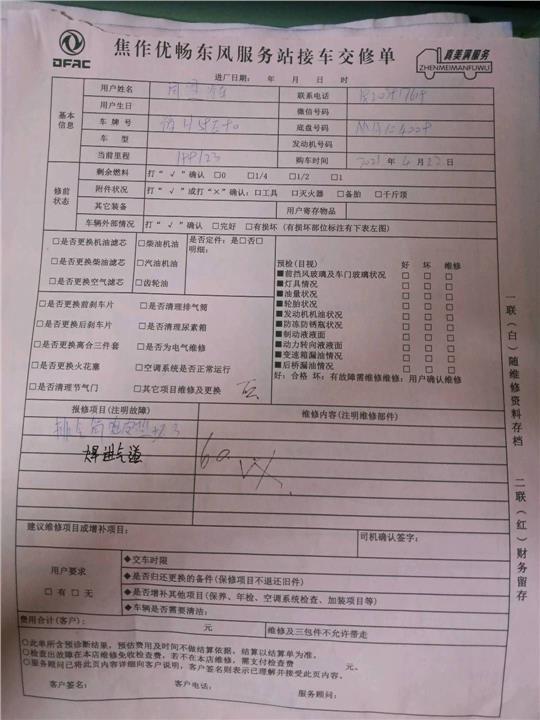 DFAC
焦作优畅东风服务站接车交修单
真美满服务
ZHENMEIMANFUWU
进厂日期： 年 月 日 时
基本信息
用户姓名
联系电话
用户生日
微信号码
车牌号
底盘号码
车型
发动机号码
当前里程 188123
购车时间 2021年 6月 22日
修前状态
剩余燃料 打“√”确认 □0 □1/4 □1/2 □1
附件状况 打“√”或打“×”确认：□工具 □灭火器 □备胎 □千斤顶
其它装备
用户寄存物品
车辆外部情况 打“√”确认 □完好 □有损坏（有损坏部位标注有下表左图）
□是否更换机油滤芯 □柴油机油 是否定件：是□否□
□是否更换柴油滤芯 □汽油机油 明细：
□是否更换空气滤芯 □齿轮油
□是否更换前刹车片 □是否清理排气筒
□是否更换后刹车片 □是否清理尿素箱
□是否更换离合三件套 □是否为电气维修
□是否更换火花塞 □空调系统是否正常运行
□是否清理节气门 □其它项目维修及更换
预检(目视) 好 坏 维修
■前挡风玻璃及车门玻璃状况 □ □ □
■灯具情况 □ □ □
■油量状况 □ □ □
■轮胎状况 □ □ □
■发动机机油状况 □ □ □
■防冻防锈瓶状况 □ □ □
■制动液液面 □ □ □
■动力转向液液面 □ □ □
■变速箱漏油情况 □ □ □
■后桥漏油情况 □ □ □
好：合格 坏：有故障需维修维修：用户确认维修
报修项目(注明故障)
维修内容(注明维修部件)
焊进气道
60
建议维修项目或增补项目：
司机确认签字：
用户要求
□有 □无
◆交车时限
◆是否归还更换的备件(保修项目不退还旧件)
◆是否增补其他项目(保养、年检、空调系统检查、加装项目等)
◆车辆是否需要清洁：
费用合计(客户)： 元
维修及三包件不允许带走
○此单所含预诊断结果，预估费用及时间不做结算依据，结算以结算单为准。
○检查出故障在本店维修免收检查费，若不在本店维修，需支付检查费 元。
○服务顾问已将此页内容详细向客户说明，客户签名则表示已理解并接受此页内容。
客户签名： 客户电话： 服务顾问：
一联（白）随维修资料存档 二联（红）财务留存